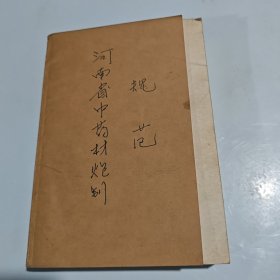 河南省中药材炮制
规范